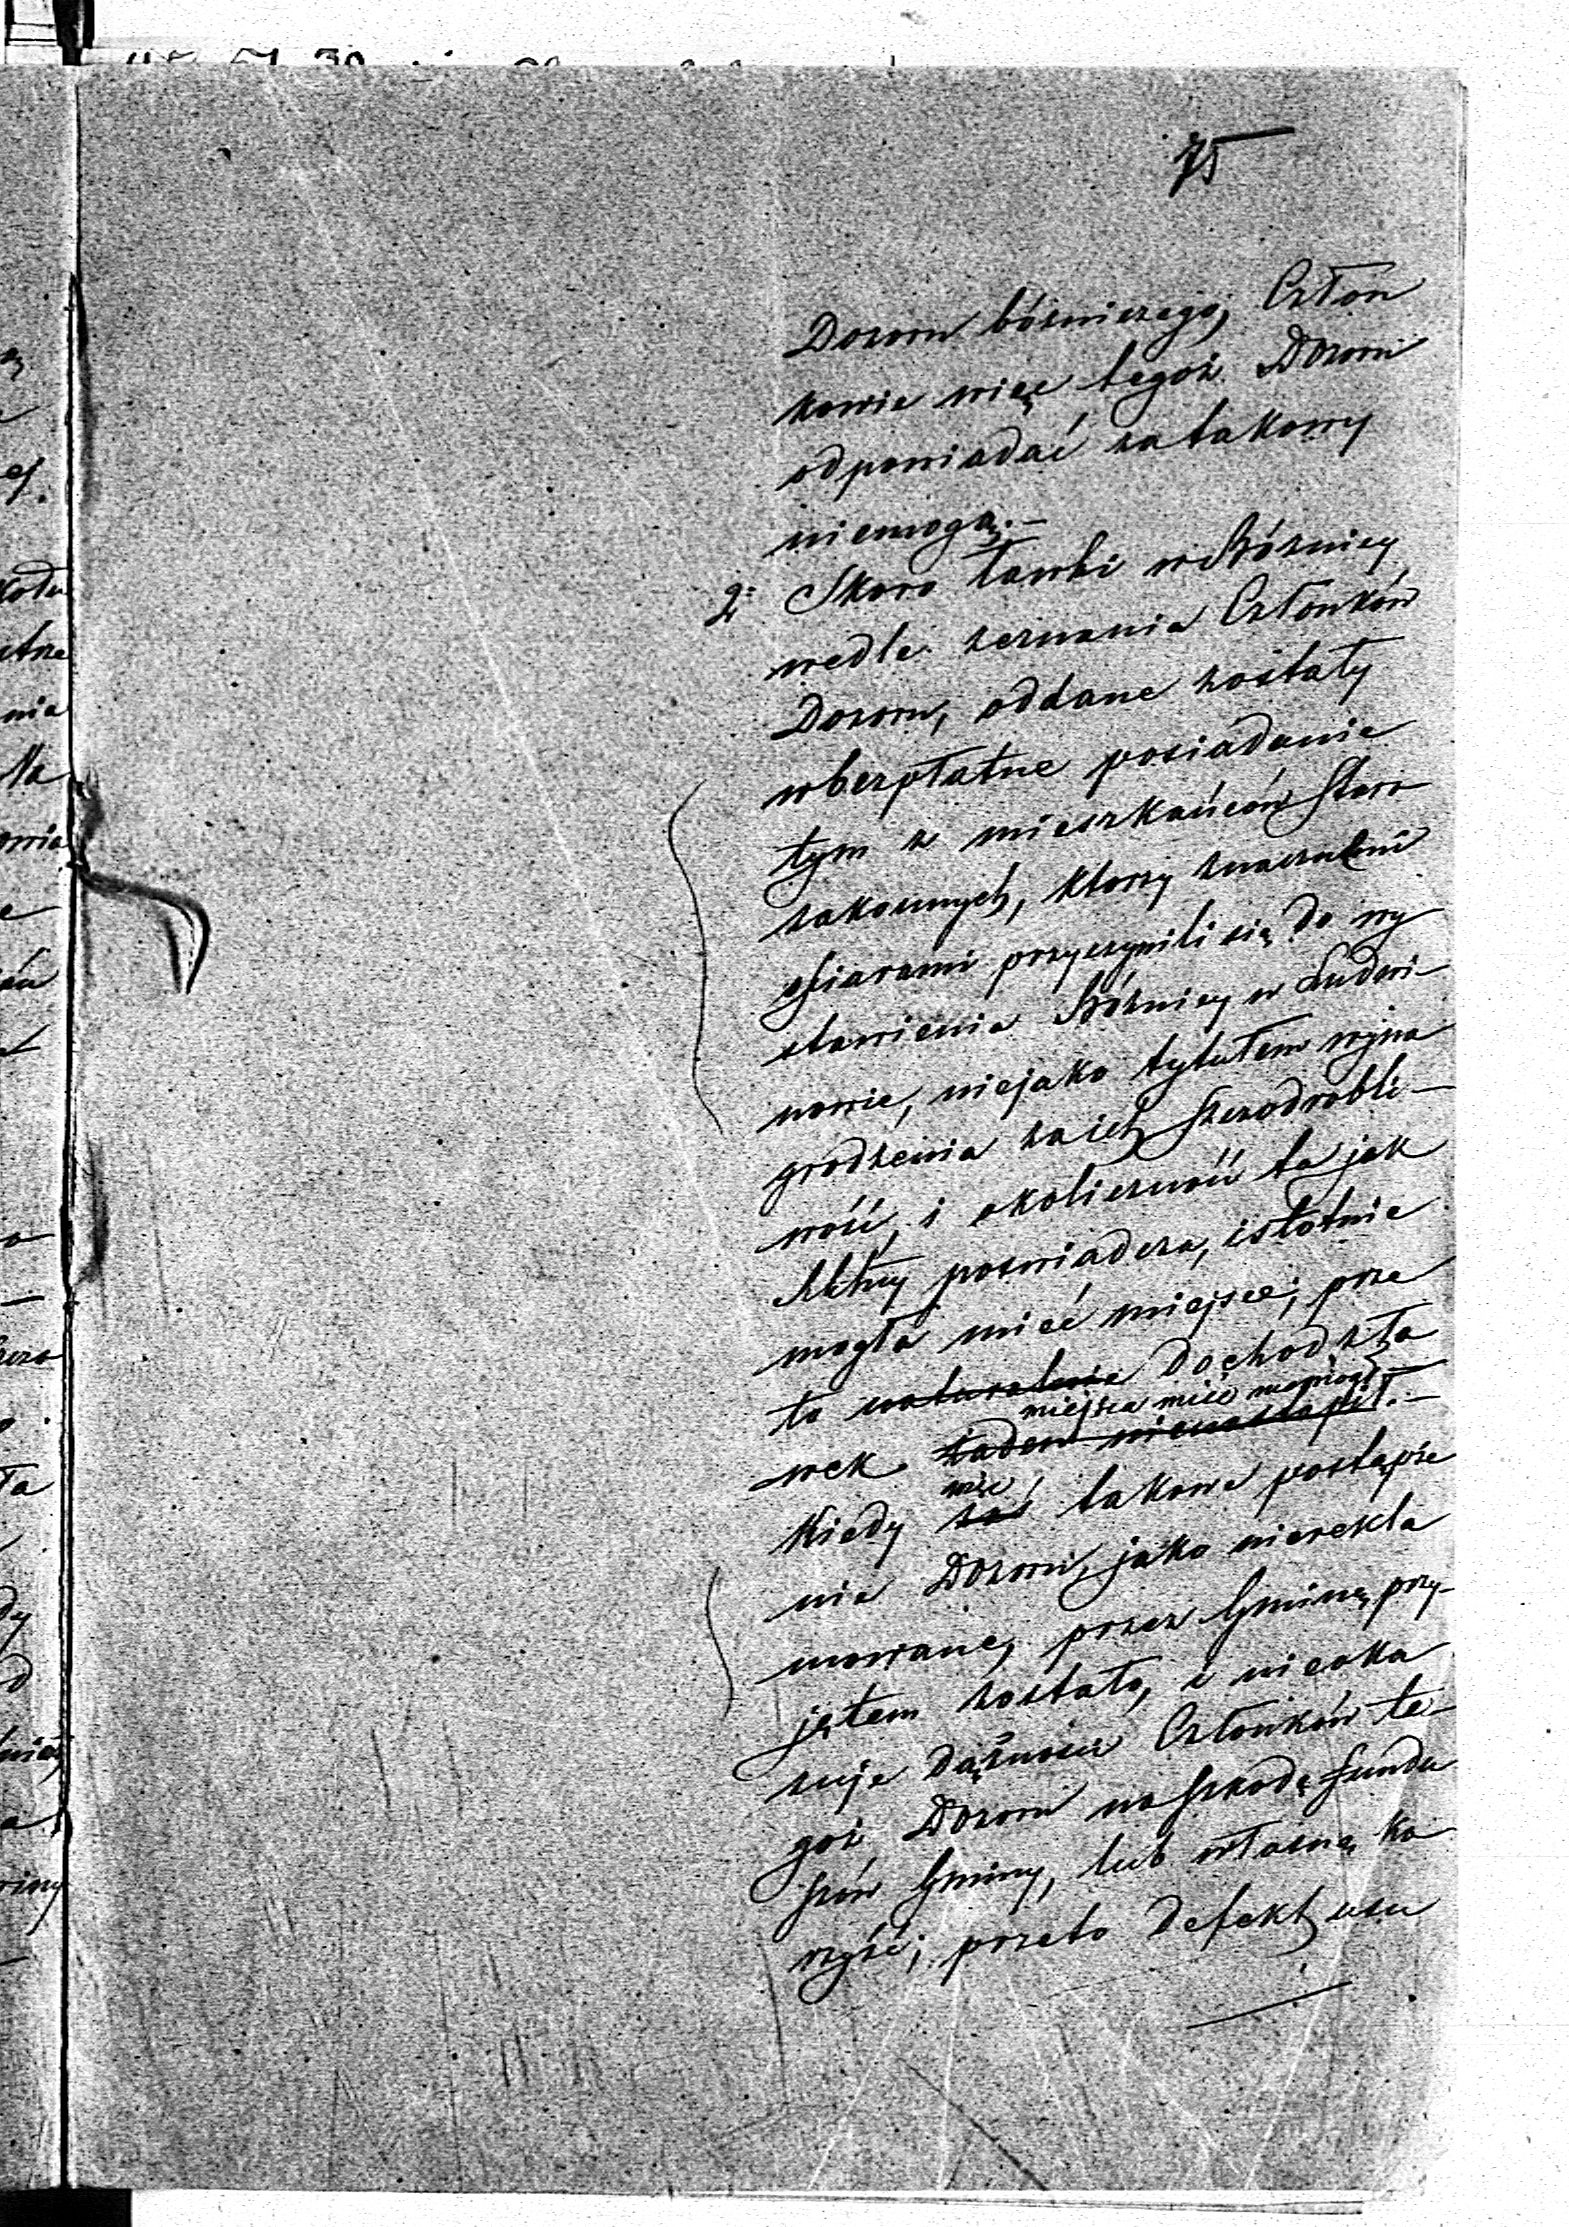 75
Dozoru bóżniczego, Człon
kowie więc tegoż Dozoru
odpowiadać za takowy
niemogą.—
2: Skoro ławki w Bóżnicy
wedle zeznania Członków
Dozoru, oddane zostały
w bezpłatne posiadanie
tym z mieszkańców Staro
zakonnych, ktorzy znacznemi
ofiarami przyczynili się do wy
stawienia Bóżnicy w Ludwi-
nowie, niejako tytułem wyna
grodzenia za ich szczodrobli-
wość, i okoliczność ta jak
poswiadcza, istotnie
mogła mieć miejsce; prze
to naturalnie Dochod z Ła
miejsca mieć niemógł.—
wek żaden nienastąpił.—
więc
Kiedy zaś takowe postępowa
nie Dozoru, jako niereklа
mowane, przez Gminę przy-
jętem zostało, i nieoka
zuje dążności Członków te-
goż Dozoru na szkodę fundu
szów Gminy, lub własną ko
rzyść; przeto defekt usu